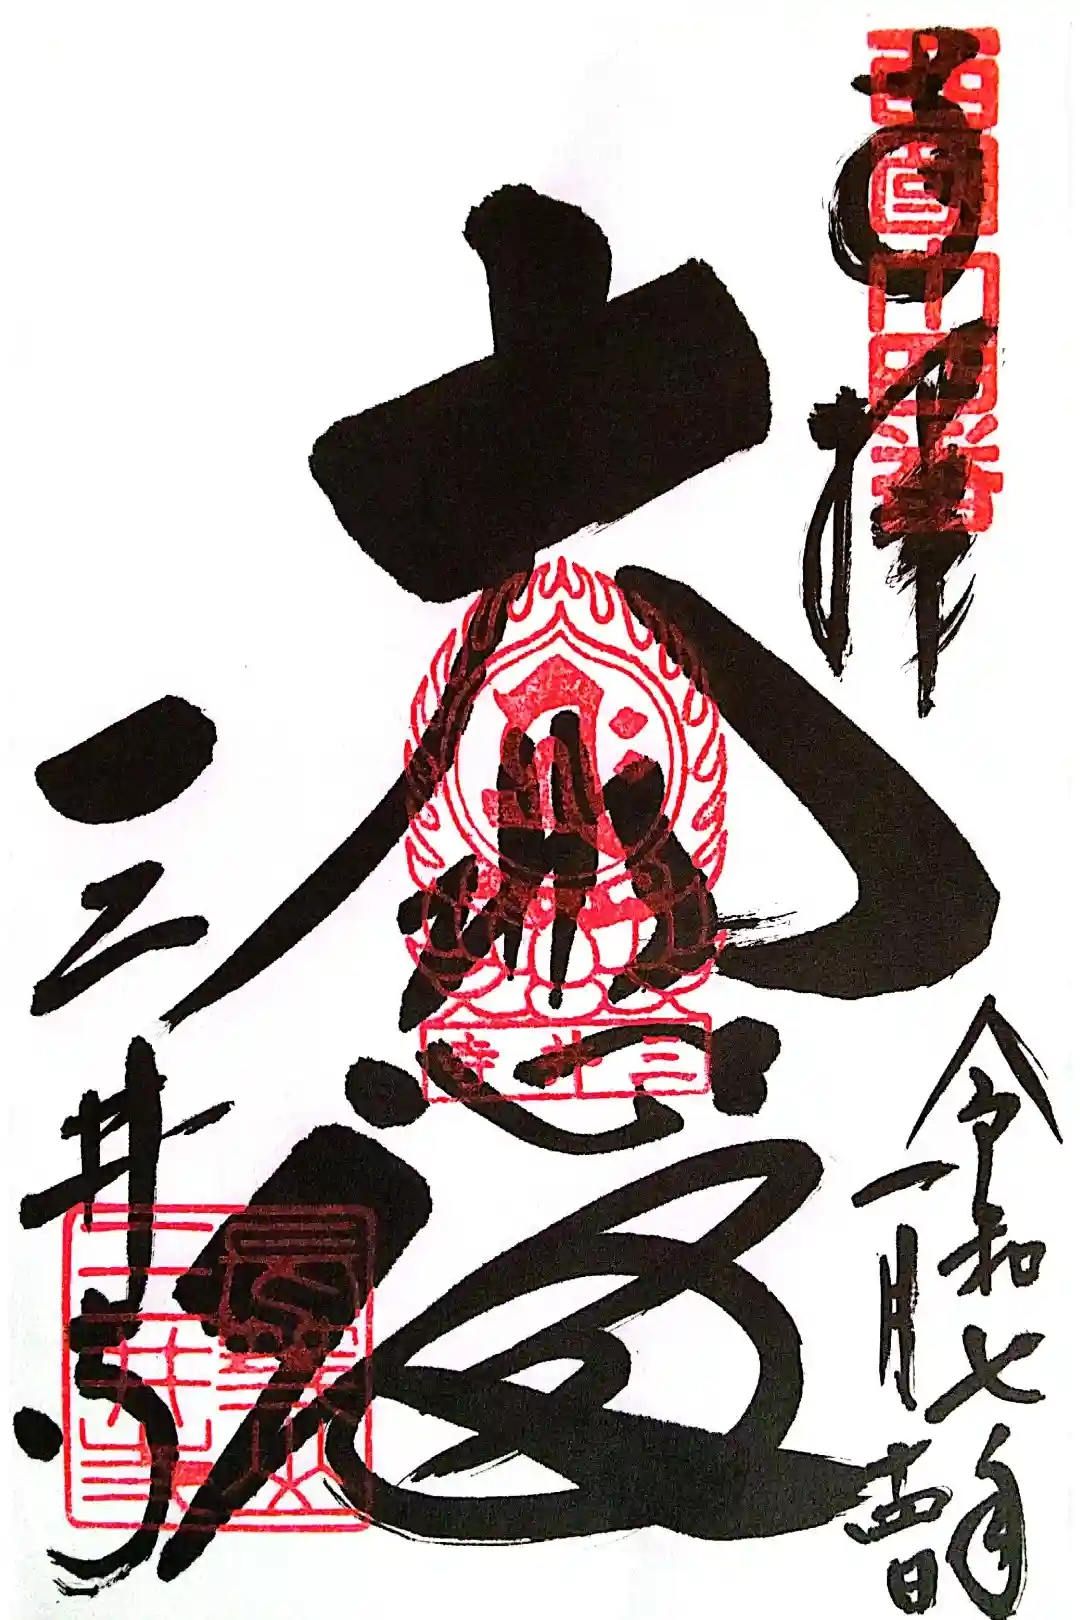 西国十四番
奉拝
令和七年
一月
大悲殿
三井寺
三井寺